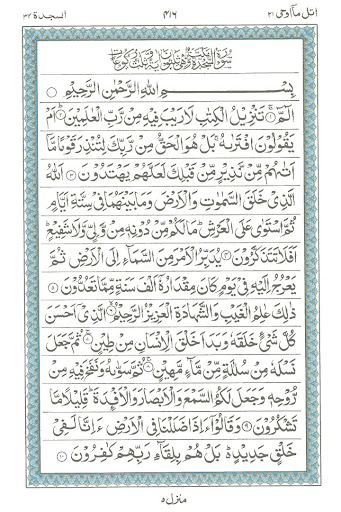 السجدة ٣٢ ٤١٦ اتل ما اوحی ٢١
سورة السجدة مكية وهي ثلثون اية وثلث ركوعات
بِسْمِ اللهِ الرَّحْمٰنِ الرَّحِيْمِ
الٓمّٓ ۚ‏﴿۱﴾ تَنْزِيْلُ الْكِتٰبِ لَا رَيْبَ فِيْهِ مِنْ رَّبِّ الْعٰلَمِيْنَ ؕ‏﴿۲﴾ اَمْ
يَقُوْلُوْنَ افْتَرٰىهُ ۚ بَلْ هُوَ الْحَقُّ مِنْ رَّبِّكَ لِتُنْذِرَ قَوْمًا مَّاۤ
اَتٰىهُمْ مِّنْ نَّذِيْرٍ مِّنْ قَبْلِكَ لَعَلَّهُمْ يَهْتَدُوْنَ ‏﴿۳﴾ اَللهُ
الَّذِيْ خَلَقَ السَّمٰوٰتِ وَالْاَرْضَ وَمَا بَيْنَهُمَا فِيْ سِتَّةِ اَيَّامٍ
ثُمَّ اسْتَوٰى عَلَى الْعَرْشِ ؕ مَا لَكُمْ مِّنْ دُوْنِهٖ مِنْ وَّلِيٍّ وَّلَا شَفِيْعٍ ؕ
اَفَلَا تَتَذَكَّرُوْنَ ‏﴿۴﴾ يُدَبِّرُ الْاَمْرَ مِنَ السَّمَآءِ اِلَى الْاَرْضِ ثُمَّ
يَعْرُجُ اِلَيْهِ فِيْ يَوْمٍ كَانَ مِقْدَارُهٗۤ اَلْفَ سَنَةٍ مِّمَّا تَعُدُّوْنَ ‏﴿۵﴾
ذٰلِكَ عٰلِمُ الْغَيْبِ وَالشَّهَادَةِ الْعَزِيْزُ الرَّحِيْمُ ۙ‏﴿۶﴾ الَّذِيْۤ اَحْسَنَ
كُلَّ شَيْءٍ خَلَقَهٗ وَبَدَاَ خَلْقَ الْاِنْسَانِ مِنْ طِيْنٍ ۚ‏﴿۷﴾ ثُمَّ جَعَلَ
نَسْلَهٗ مِنْ سُلٰلَةٍ مِّنْ مَّآءٍ مَّهِيْنٍ ۚ‏﴿۸﴾ ثُمَّ سَوّٰىهُ وَنَفَخَ فِيْهِ مِنْ
رُّوْحِهٖ وَجَعَلَ لَكُمُ السَّمْعَ وَالْاَبْصَارَ وَالْاَفْـِٕدَةَ ؕ قَلِيْلًا مَّا
تَشْكُرُوْنَ ‏﴿۹﴾ وَقَالُوْۤا ءَاِذَا ضَلَلْنَا فِي الْاَرْضِ ءَاِنَّا لَفِيْ
خَلْقٍ جَدِيْدٍ ؕ بَلْ هُمْ بِلِقَآئِ رَبِّهِمْ كٰفِرُوْنَ ‏﴿۱۰﴾
منزل ٥